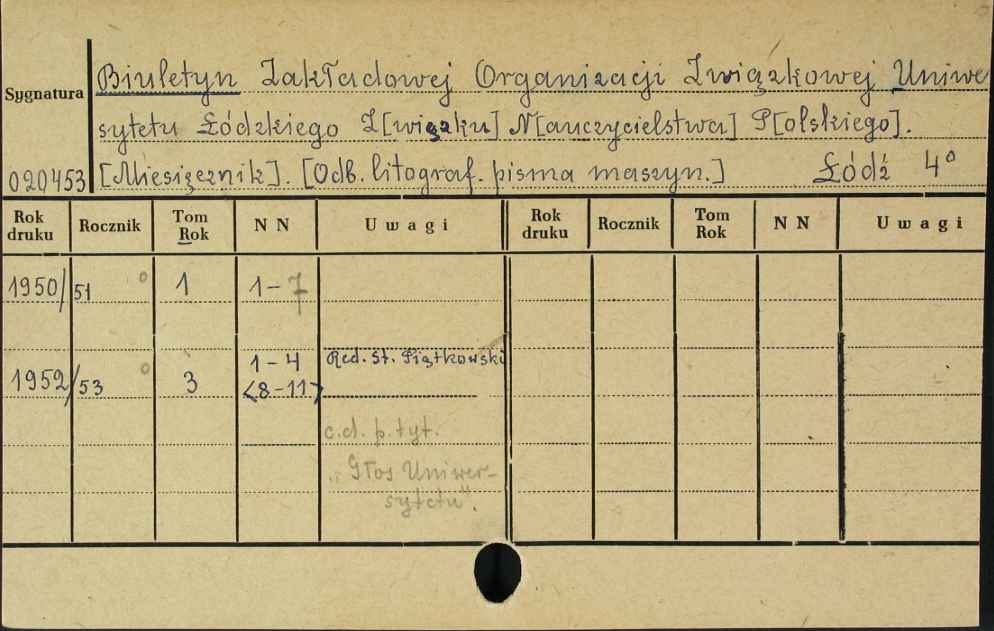 Sygnatura
Biuletyn Zakładowej Organizacji Związkowej Uniwe
sytetu Łódzkiego Z[wiązku] N[auczycielstwa] P[olskiego].
020453 [Miesięcznik]. [Odb. litograf. pisma maszyn.] Łódź 4°
Rok druku Rocznik Tom Rok N N Uwagi Rok druku Rocznik Tom Rok N N Uwagi
1950/51 ° 1 1-7
1952/53 ° 3 1-4 <8-11> Red. St. Piątkowski
c.d. p. tyt.
„Głos Uniwer-
sytetu".